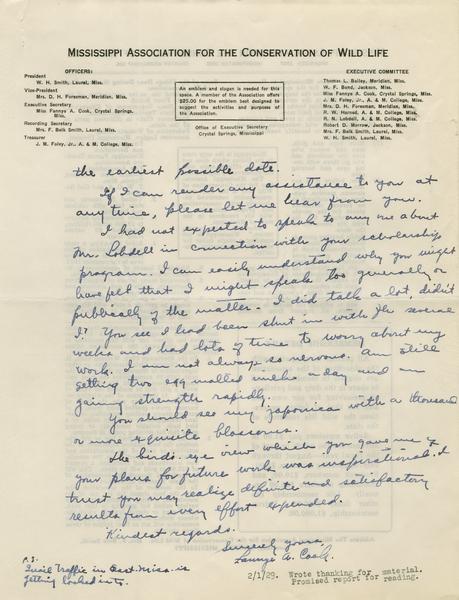 MISSISSIPPI ASSOCIATION FOR THE CONSERVATION OF WILD LIFE
OFFICERS:
President
W. H. Smith, Laurel, Miss.
Vice-President
Mrs. D. H. Foresman, Meridian, Miss.
Executive Secretary
Miss Fannye A. Cook, Crystal Springs, Miss.
Recording Secretary
Mrs. F. Belk Smith, Laurel, Miss.
Treasurer
J. M. Foley, Jr., A. & M. College, Miss.
An emblem and slogan is needed for this
space. A member of the Association offers
$25.00 for the emblem best designed to
suggest the activities and purposes
of the Association.
Office of Executive Secretary
Crystal Springs, Mississippi
EXECUTIVE COMMITTEE
Thomas L. Bailey, Meridian, Miss.
W. F. Bond, Jackson, Miss.
Miss Fannye A. Cook, Crystal Springs, Miss.
J. M. Foley, Jr., A. & M. College, Miss.
Mrs. D. H. Foresman, Meridian, Miss.
R. W. Harned, A. & M. College, Miss.
R. N. Lobdell, A. & M. College, Miss.
Robert D. Morrow, Jackson, Miss.
Mrs. F. Belk Smith, Laurel, Miss.
W. H. Smith, Laurel, Miss.
the earliest possible date.
If I can render any assistance to you at
any time, please let me hear from you.
I had not expected to speak to any one about
Mr. Lobdell in connection with your scholarship
program. I can easily understand why you might
have felt that I might speak too generally or
publically of the matter. I did talk a lot, didn't
I? You see I had been shut in with flu several
weeks and had lots of time to worry about my
work. I am not always so nervous. Am still
getting two egg malted milks a day and am
gaining strength rapidly.
You should see my japonica with a thousand
or more exquisite blossoms.
The birds-eye view which you gave me of
your plans for future work was inspirational. I
trust you may realize definite and satisfactory
results from every effort expended.
Kindest regards.
Sincerely yours,
Fannye A. Cook.
P.S.
Quail Traffic in East Miss. is
getting looked into.
2/1/29. Wrote thanking for material.
Promised report for reading.